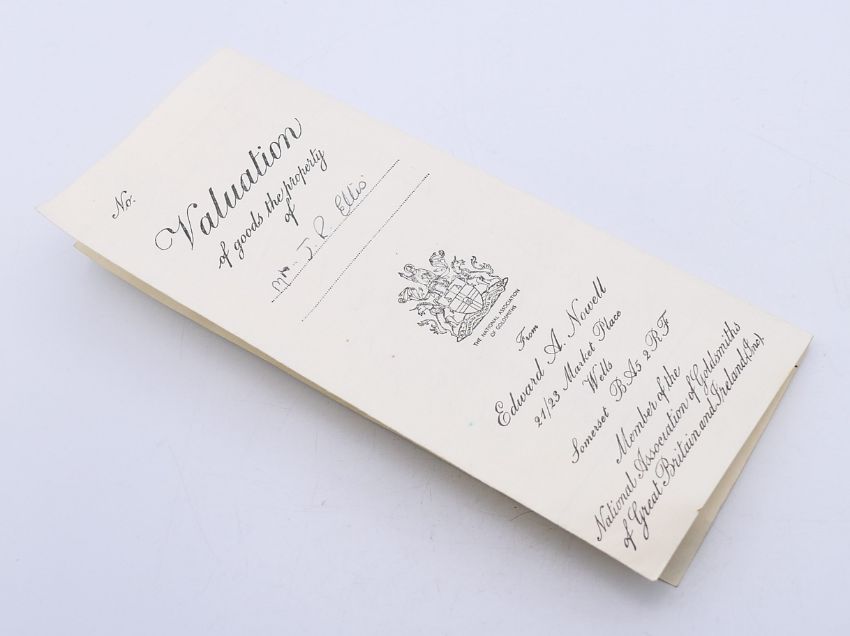 No.
Valuation
of goods the property
of
Mr. J. R. Ellis
THE NATIONAL ASSOCIATION
OF GOLDSMITHS
From
Edward A. Nowell
21/23 Market Place
Wells
Somerset BA5 2RF
Member of the
National Association of Goldsmiths
of Great Britain and Ireland, (Inc).